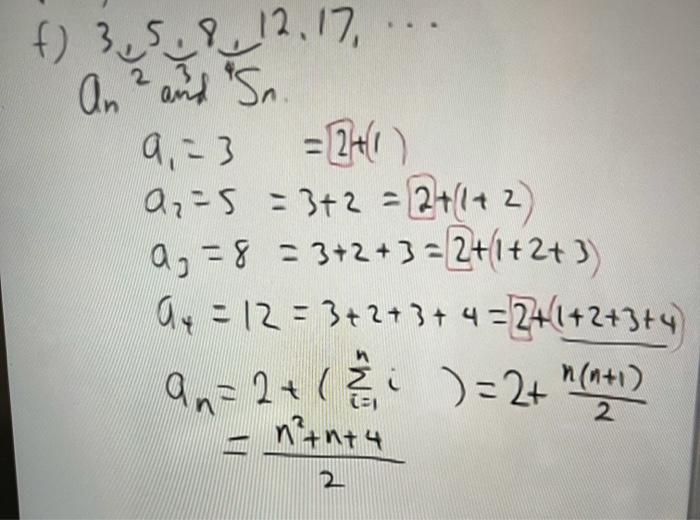 f) 3, 5, 8, 12, 17, ...
2 3 4
an and Sn.
a₁ = 3 = 2+(1)
a₂ = 5 = 3+2 = 2+(1+2)
a₃ = 8 = 3+2+3 = 2+(1+2+3)
a₄ = 12 = 3+2+3+4 = 2+(1+2+3+4)
aₙ = 2+(∑ⁿᵢ₌₁ i) = 2+ n(n+1)/2
= n²+n+4/2